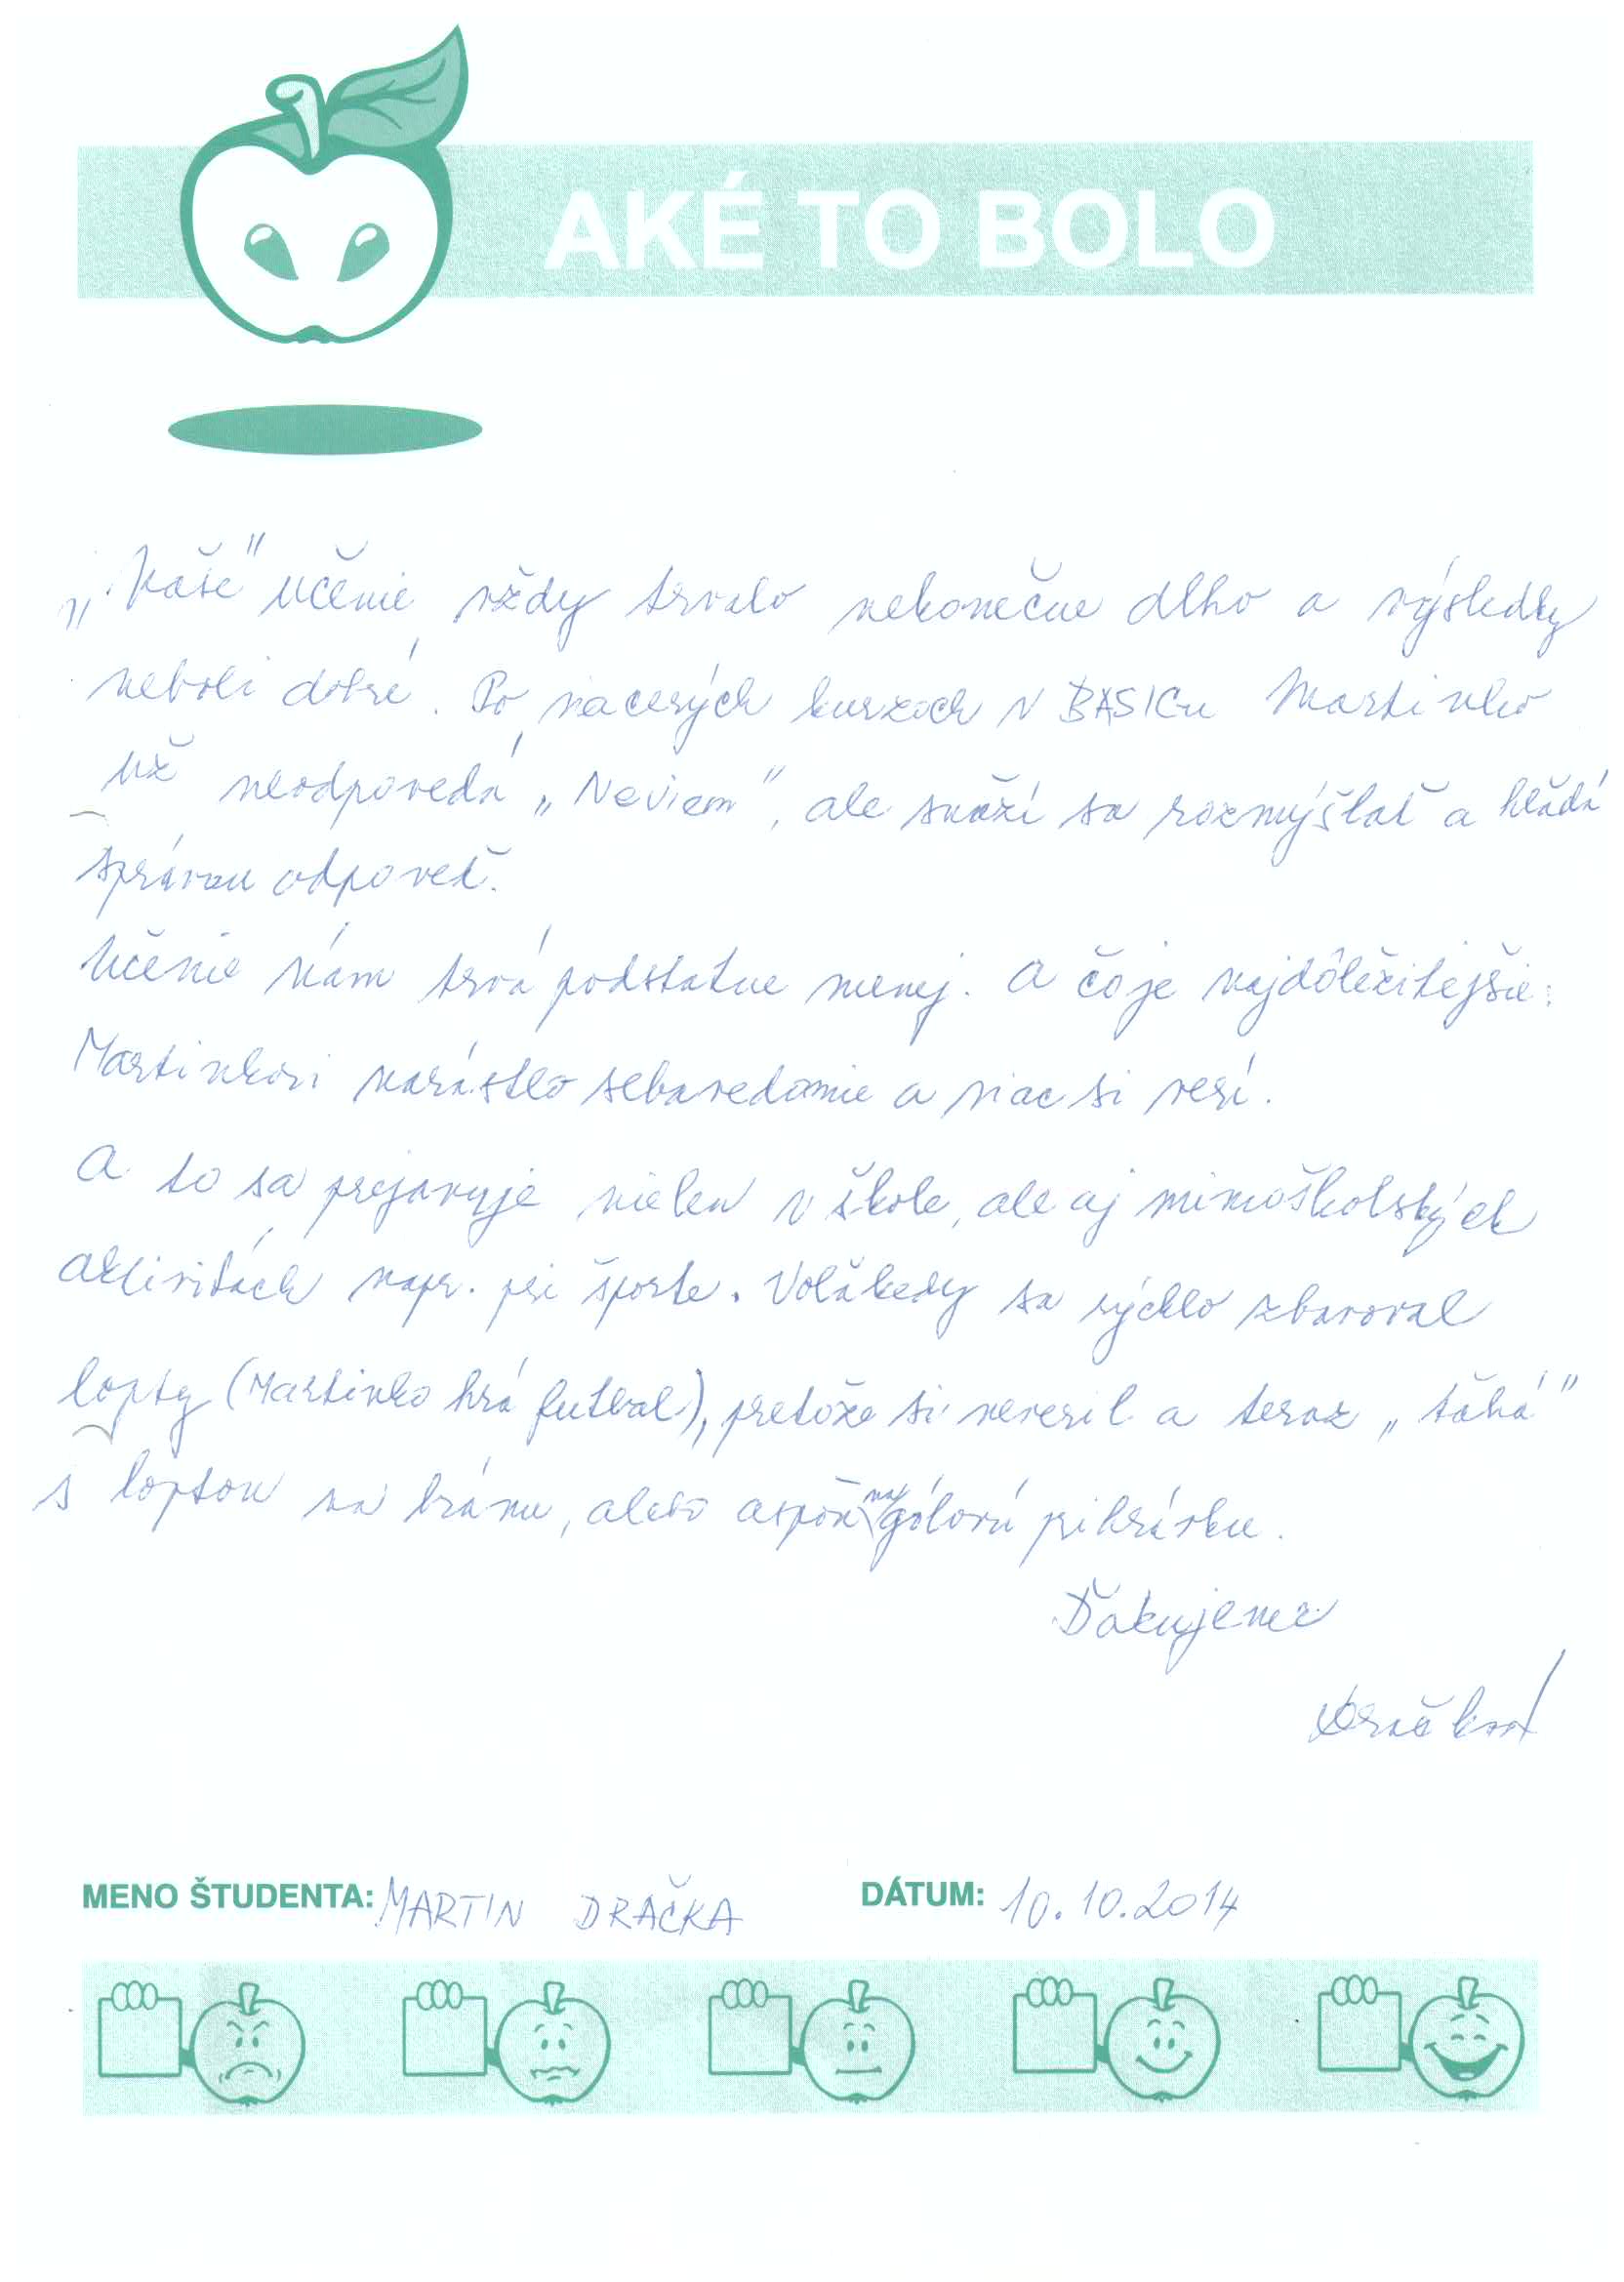 AKÉ TO BOLO
„Naše" učenie vždy trvalo nekonečne dlho a výsledky
neboli dobré. Po viacerých kurzoch v BASICu Martinko
už neodpovedá „Neviem", ale snaží sa rozmýšlať a hľadá
správnu odpoveď.
Učenie nám trvá podstatne menej. A čo je najdôležitejšie:
Martinkovi narástlo sebavedomie a viac si verí.
A to sa prejavuje nielen v škole, ale aj mimoškolských
aktivitách napr. pri športe. Voľakedy sa rýchlo zbavoval
lopty (Martinko hrá futbal), pretože si neveril a teraz „ťahá"
s loptou na bránu, alebo aspoň na gólovú prihrávku.
Ďakujeme
MENO ŠTUDENTA: MARTIN DRAČKA DÁTUM: 10.10.2014